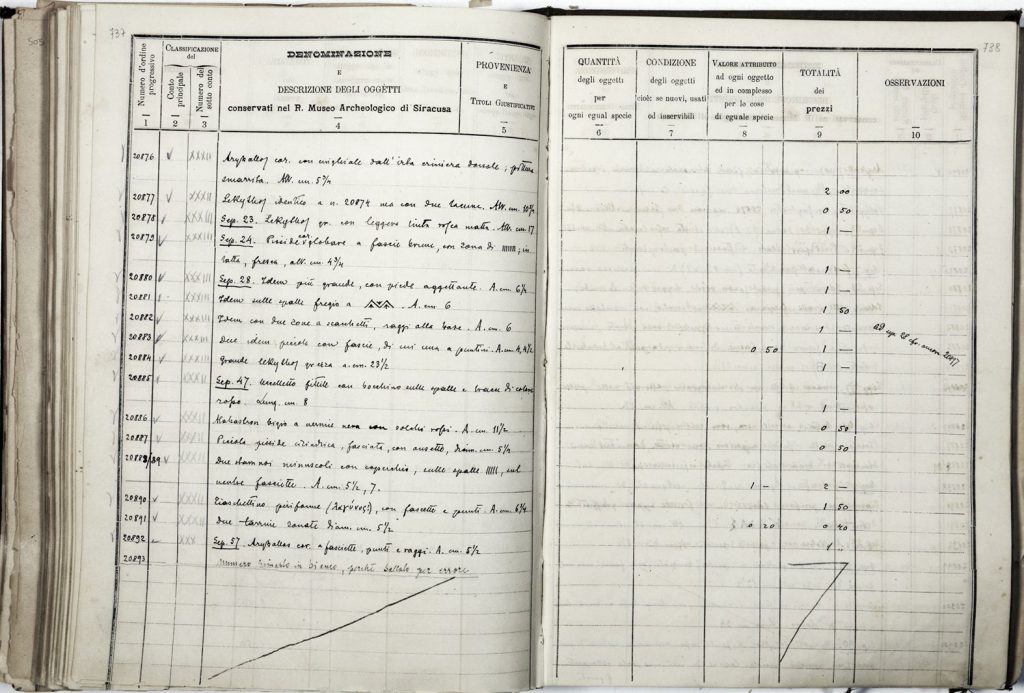 737
Numero d'ordine progressivo
CLASSIFICAZIONE del
Conto principale
Numero del sotto conto
DENOMINAZIONE
E
DESCRIZIONE DEGLI OGGETTI
conservati nel R. Museo Archeologico di Siracusa
PROVENIENZA
E
TITOLI GIUSTIFICATIVI
1 2 3 4 5
20876 V XXXII Aryballos cor. con cinghiale dall'irta criniera dorsale; pittura
smarrita. Alt. cm. 5 3/4
20877 V XXXII Lekythos identico a n. 20874 ma con due lacune. Alt. cm.
20878 V XXXII Sep. 23. Lekythos gr. con leggera tinta rossa matta. Alt. cm. 17
20879 V XXXII Sep. 24. Pisside cor. globare a fascie brune, con zona di IIIIII; in
tatta, fresca, alt. cm. 4 3/4
20880 V XXXII Sep. 28. Idem più grande, con piede aggettante. A. cm. 6 1/2
20881 XXXII Idem sulle spalle fregio a A. cm 6
20882 V XXXII Idem con due zone a scacchetti, raggi alla base. A. cm. 6
20883 V XXXII due idem piccole con fascie, di cui una a puntini. A. cm. 4, 4 1/2
20884 V XXXII grande lekythos grezza a. cm. 23 1/2
20885 V XXXII Sep. 47. uccelletto fittile con bocchino sulle spalle e tracce di colore
rosso. Lung. cm. 8
20886 V XXXII Alabastron bigio a vernice nera con solchi rossi. A. cm. 11 1/2
20887 V XXXII Piccola pisside cilindrica, fasciata, con ansette, diam. cm. 5 1/4
20888/89 V XXXII due stamnoi minuscoli con coperchio, sulle spalle IIIII, sul
ventre fasciette. A. cm. 5 1/2, 7.
20890 V XXXII Fiaschettino piriforme (λαγύνος?), con fascette e punti. A. cm. 6 3/4
20891 V XXXII due tazzine zonate diam. cm. 5 1/2
20892 XXX Sep. 57. Aryballos cor. a fasciette, punti e raggi. A. cm. 5 1/2
20893 numero rimasto in bianco, perchè saltato per errore
738
QUANTITÀ
degli oggetti
per
ogni egual specie
CONDIZIONE
degli oggetti
cioè: se nuovi, usati
od inservibili
VALORE ATTRIBUITO
ad ogni oggetto
ed in complesso
per le cose
di eguale specie
TOTALITÀ
dei
prezzi
OSSERVAZIONI
6 7 8 9 10
2 00
0 50
1 —
1 —
1 50
1 —
0 50 1 —
1 —
0 50
0 50
1 – 2 –
1 50
0 20 0 40
1